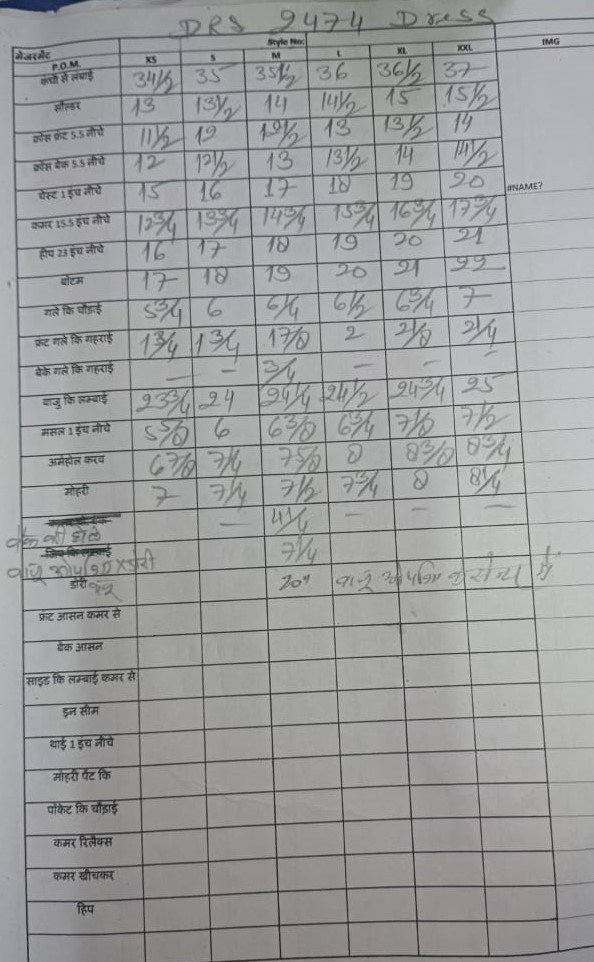 DRS 2474 Dress
Style No: IMG
मेजरमेंट
P.O.M. XS S M L XL XXL
कंधे से लंबाई 34 1/2 35 35 1/2 36 36 1/2 37
सोल्डर 13 13 1/2 14 14 1/2 15 15 1/2
क्रोस फ्रंट 5.5 नीचे 11 1/2 12 12 1/2 13 13 1/2 14
क्रोस बेक 5.5 नीचे 12 12 1/2 13 13 1/2 14 14 1/2
चेस्ट 1 इंच नीचे 15 16 17 18 19 20 #NAME?
कमर 15.5 इंच नीचे 12 3/4 13 3/4 14 3/4 15 3/4 16 3/4 17 3/4
हीप 23 इंच नीचे 16 17 18 19 20 21
बोटम 17 18 19 20 21 22
गले कि चौड़ाई 5 3/4 6 6 1/4 6 1/2 6 3/4 7
फ्रंट गले कि गहराई 1 3/4 1 3/4 1 7/8 2 2 1/8 2 1/4
बेके गले कि गहराई — — 3/4 — — —
बाजु कि लम्बाई 23 3/4 24 24 1/4 24 1/2 24 3/4 25
मसल 1 इंच नीचे 5 5/8 6 6 3/8 6 3/4 7 1/8 7 1/2
अर्महोल करव 6 7/8 7 1/4 7 5/8 8 8 3/8 8 3/4
मोहरी 7 7 1/4 7 1/2 7 3/4 8 8 1/4
बैक की होल — 4 1/4 — — —
बाजू ओपनिंग 7 1/4
डोरी 20" बाजू ओपनिंग के सेन्टर में
फ्रंट आसन कमर से
बेक आसन
साइड कि लम्बाई कमर से
इन सीम
थाई 1 इंच नीचे
मोहरी पेंट कि
पॉकेट कि चौड़ाई
कमर रिलैक्स
कमर खीचकर
हिप